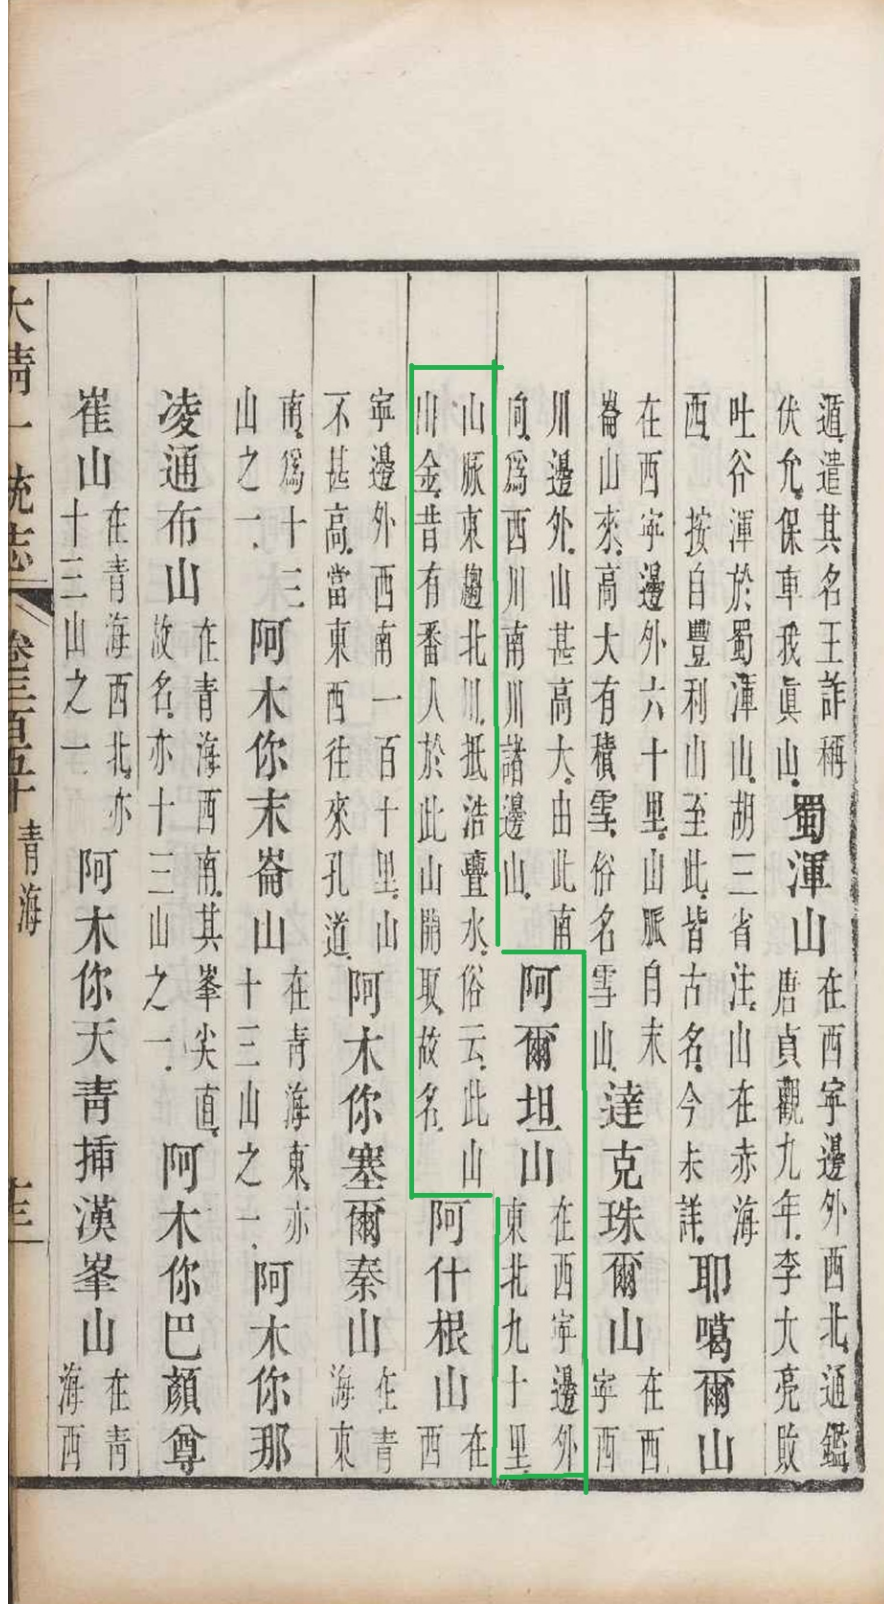 遁遣其名王詐稱
伏允保車我眞山
蜀渾山
在西寧邊外西北通鑑
唐貞觀九年李大亮敗
吐谷渾於蜀渾山胡三省注山在赤海
西按自豐利山至此皆古名今未詳
耶噶爾山
在西寧邊外六十里山脈自末
崙山來高大有積雪俗名雪山
達克珠爾山
在西
寧西
川邊外山甚高大由此南
向爲西川南川諸邊山
阿爾坦山
在西寧邊外
東北九十里
山脈東趨北川抵浩亹水俗云此山
出金昔有番人於此山開取故名
阿什根山
在
西
寧邊外西南一百十里山
不甚高當東西往來孔道
阿木你塞爾秦山
在青
海東
南爲十三
山之一
阿木你末崙山
在青海東亦
十三山之一
阿木你那
凌通布山
在青海西南其峯尖直
故名亦十三山之一
阿木你巴顏尊
崔山
在青海西北亦
十三山之一
阿木你天青揷漢峯山
在青
海西
大清一統志
卷三百五十
青海